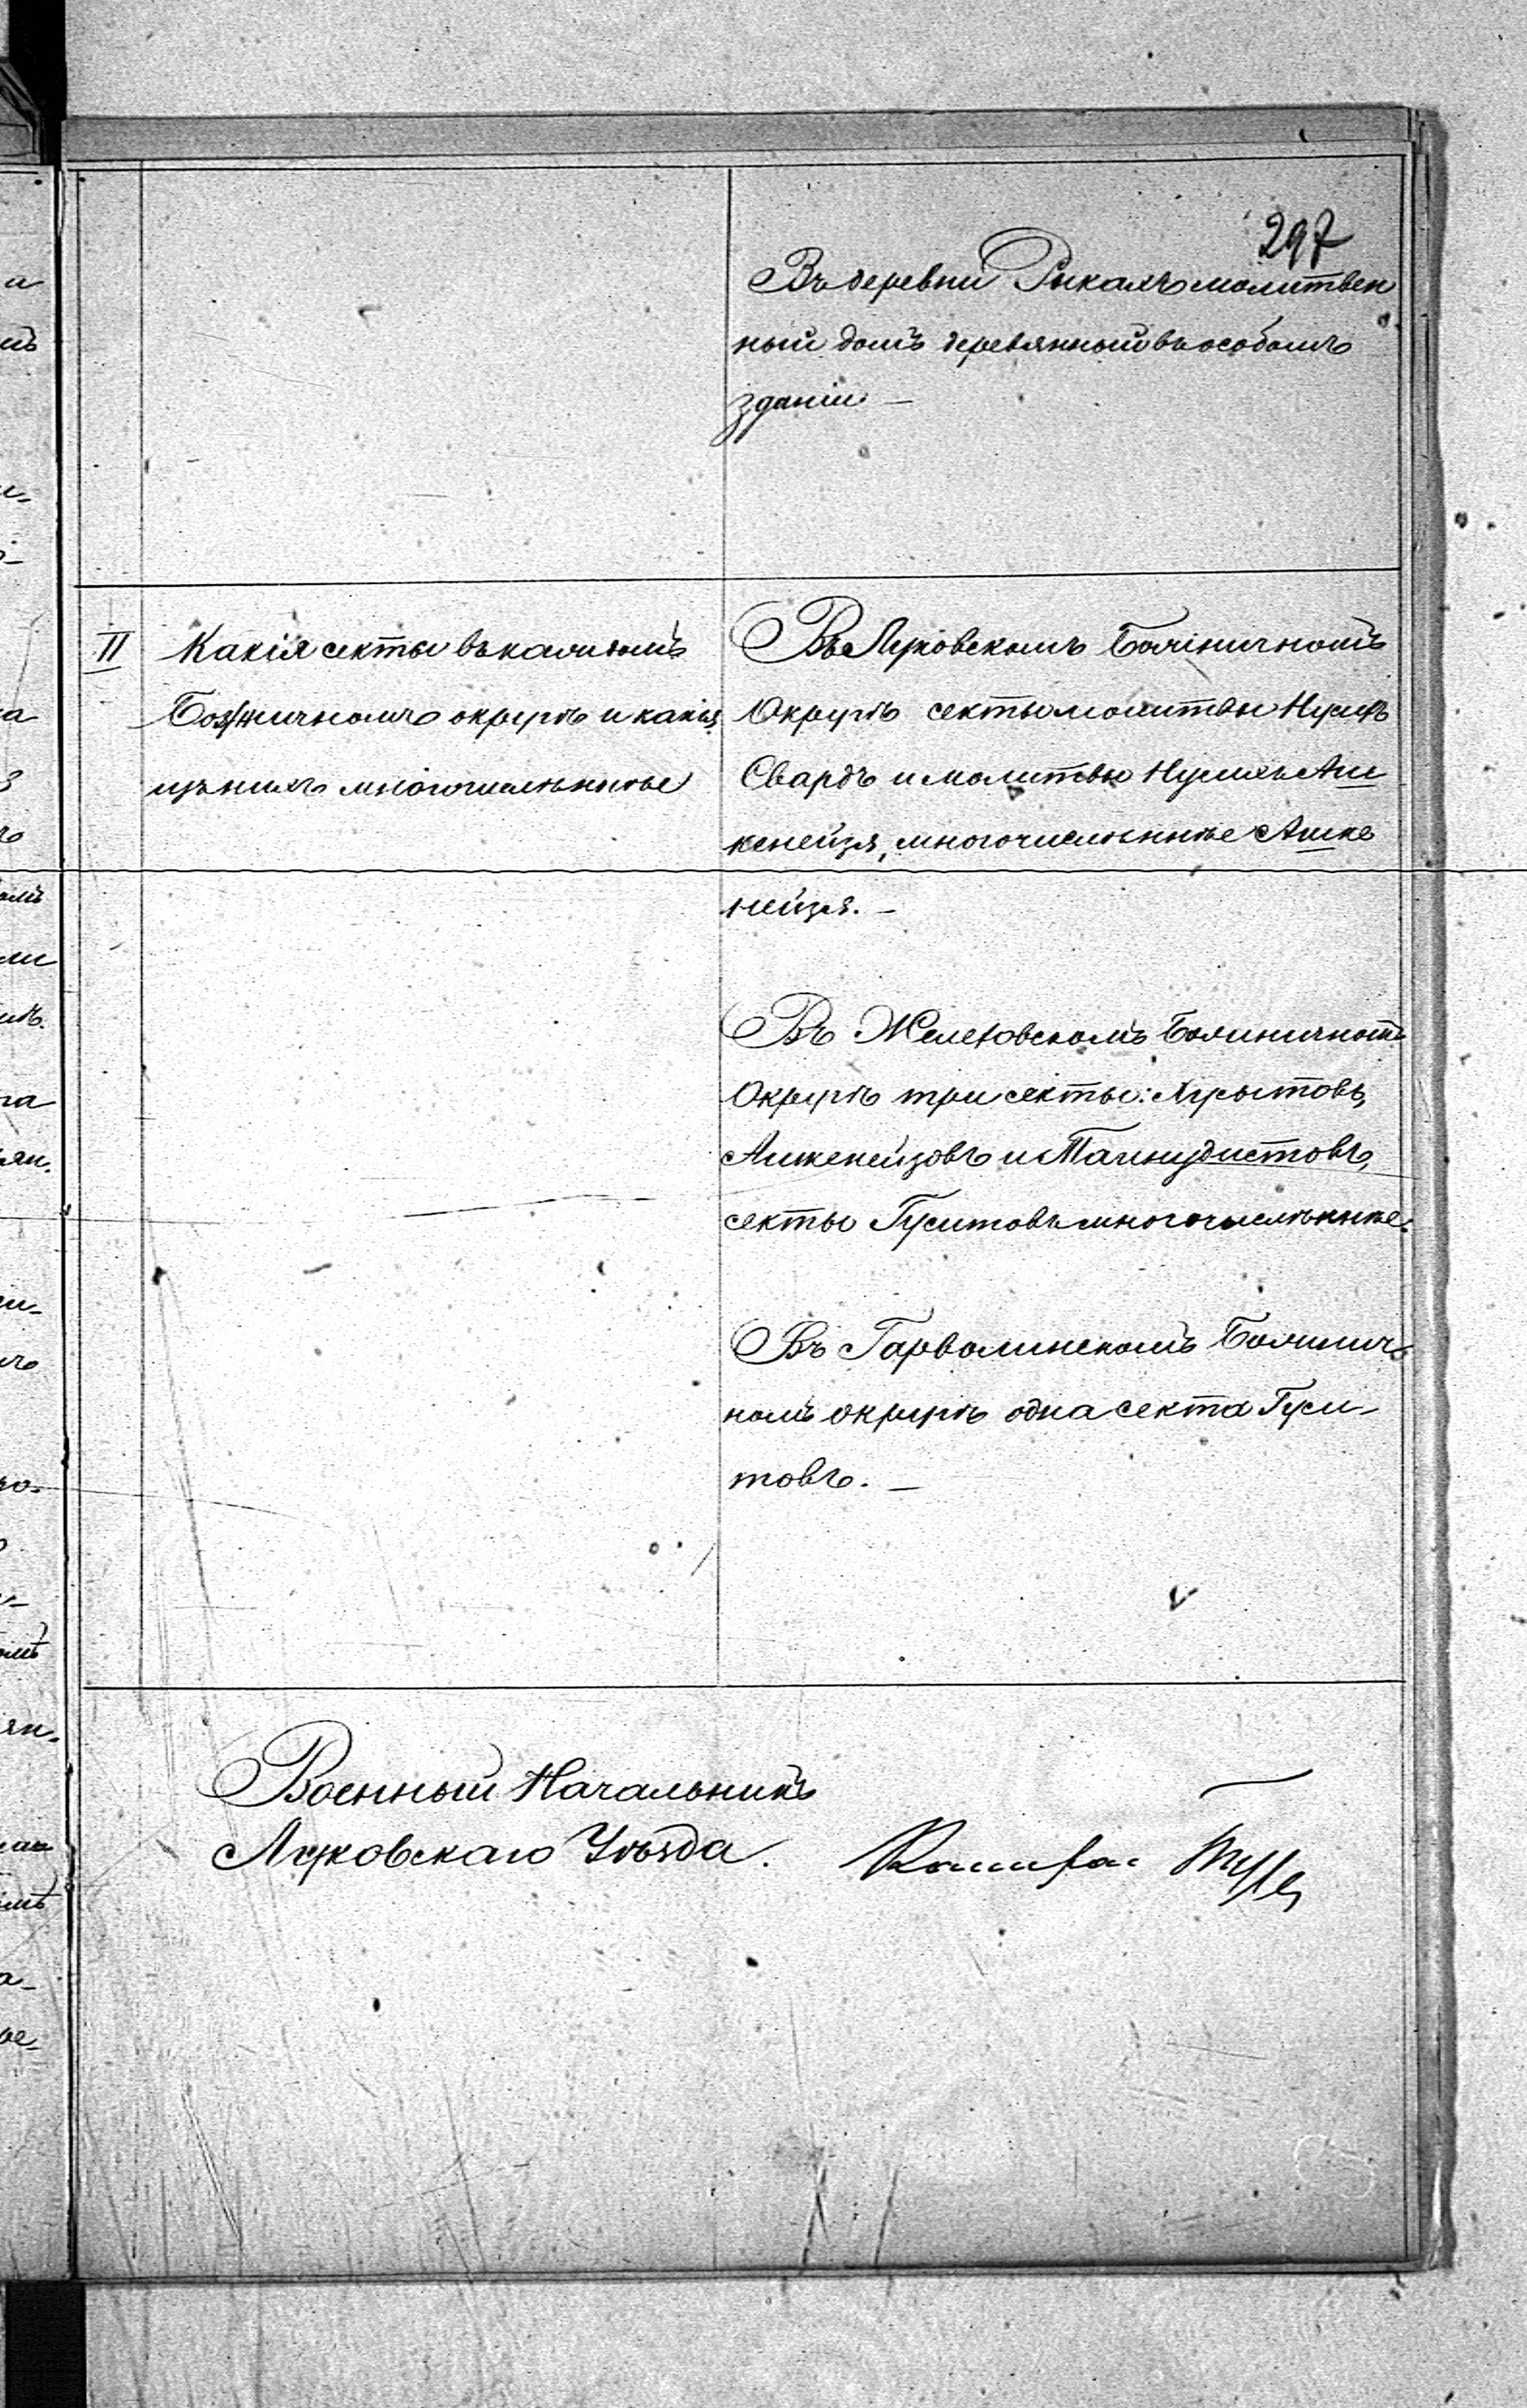 297
Въ деревни Рыкахъ молитвен
ный домъ деревянный въ особомъ
зданіи —
II
Какія секты въ каждомъ
Божничномъ округѣ и какія
изъ нихъ многочисленнѣе
Въ Луковскомъ Божничномъ
Округѣ секты молитвы Нусихъ
Свардъ и молитвы Нусихъ Аш
кенейзя, многочисленнѣе Ашке
нейзя. —
Въ Желеховскомъ Божничномъ
Округѣ три секты:
Ашкенейзовъ и Талмудистовъ,
секты Гуситовъ многочисленнѣе.
Въ Гарволинскомъ Божнич
номъ округѣ одна секта Гуси-
товъ. —
Военный Начальникъ
Луковскаго Уѣзда.